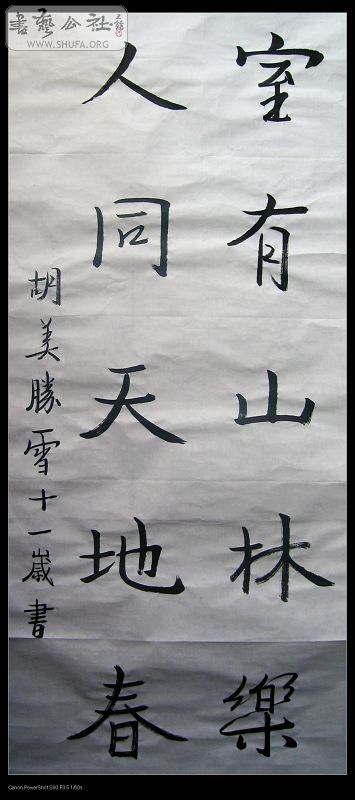 室有山林樂
人同天地春
胡美勝雪十一歲書
書藝公社
WWW.SHUFA.ORG
Canon PowerShot S80 F3.5 1/60s